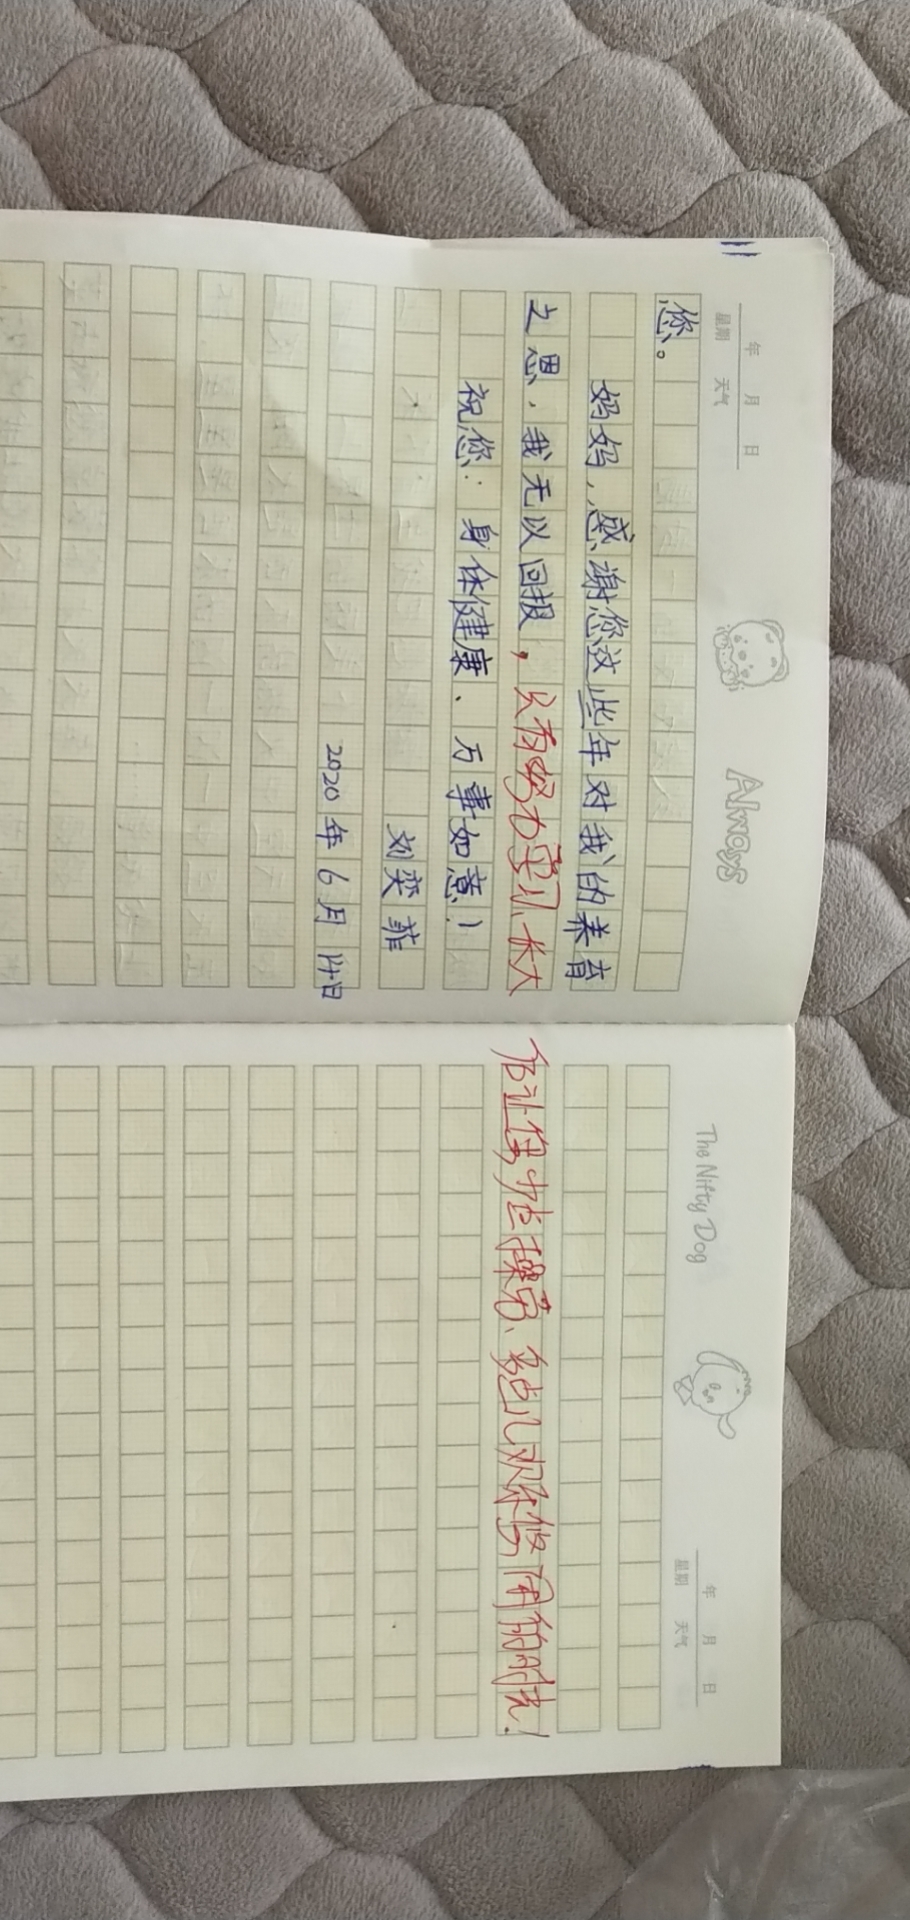 年 月 日
星期 天气
Always
您。
妈妈，感谢您这些年对我的养育
之恩，我无以回报，只有努力学习，长大
祝您：身体健康、万事如意！
刘奕菲
2020年6月14日
The Nifty Dog
年 月 日
星期 天气
后让您少些操劳、多点儿欢乐悠闲的时光！